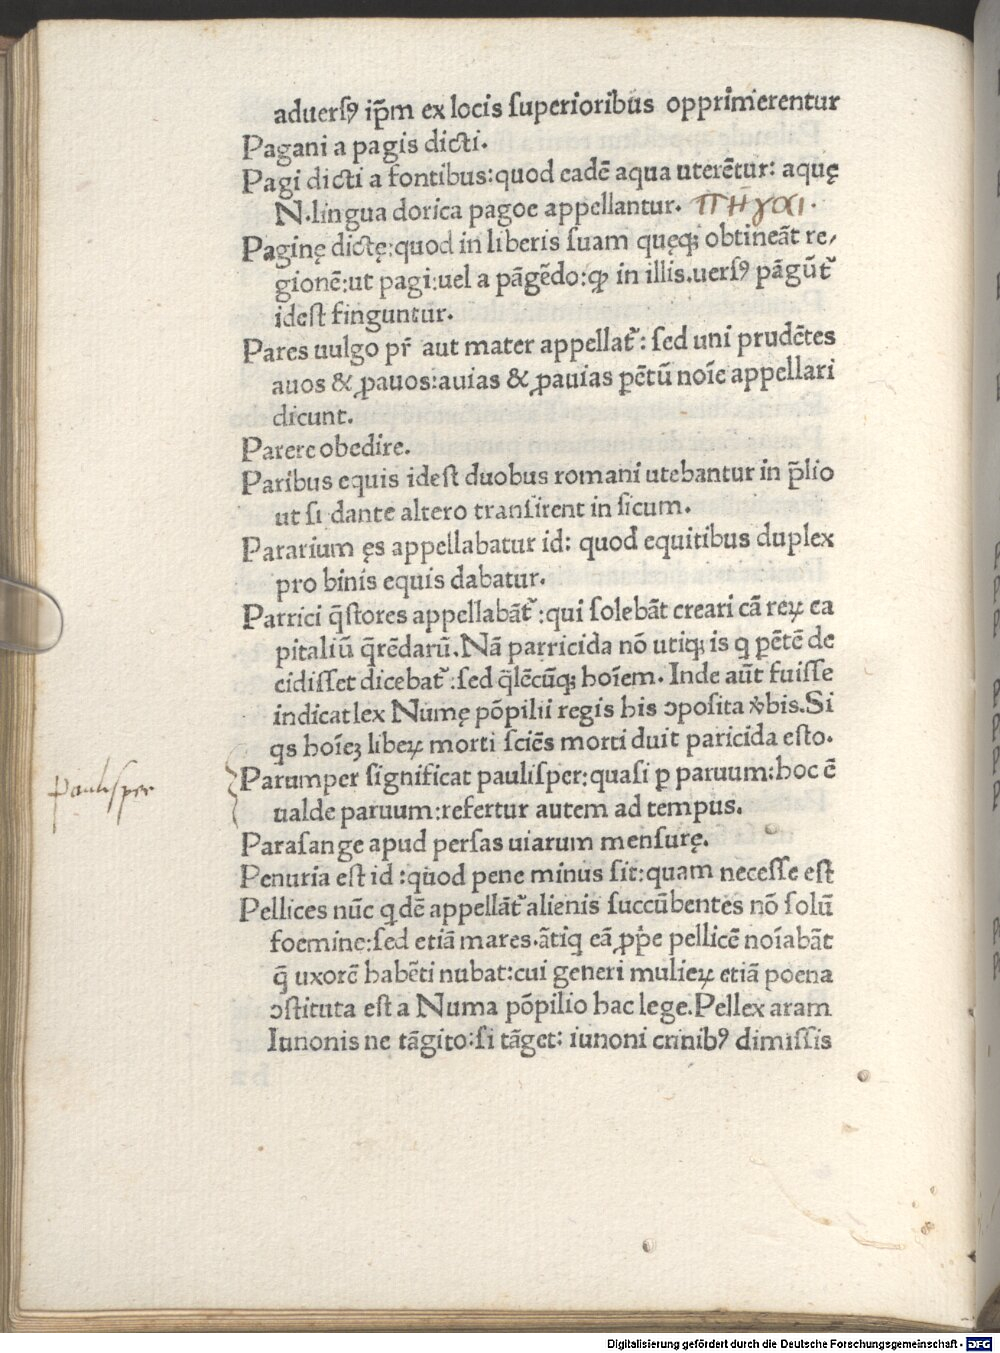 aduersꝰ ip̄m ex locis superioribus opprimerentur
Pagani a pagis dicti.
Pagi dicti a fontibus:quod eadē aqua uterētur: aquę
N.lingua dorica pagoe appellantur. πηγαι.
Paginę dictę:quod in liberis suam quęqꝫ obtineāt re/
gionē:ut pagi:uel a pāgēdo:ꝙ in illis.uersꝰ pāgūt᷑
idest finguntur.
Pares uulgo pr̄ aut mater appellat᷑: sed uni prudētes
auos & ꝓauos:auias & ꝓauias pētū noīe appellari
dicunt.
Parere obedire.
Paribus equis idest duobus romani utebantur in p̄lio
ut si dante altero transirent in sicum.
Pararium ęs appellabatur id: quod equitibus duplex
pro binis equis dabatur.
Parrici q̄stores appellabāt᷑:qui solebāt creari cā reꝝ ca
pitaliū q̄rēdarū.Nā parricida nō utiqꝫ is q pētē de
cidisset dicebat᷑:sed q̄lēcūqꝫ hoīem. Inde aūt fuisse
indicat lex Numę pōpilii regis his ɔposita v̾bis.Si
qs hoīeꝫ libeꝝ morti sciēs morti duit paricida esto.
Parumper significat paulisper:quasi ꝑ paruum:hoc ē
ualde paruum:refertur autem ad tempus.
paulisper
Parasange apud persas uiarum mensurę.
Penuria est id :quod pene minus sit:quam necesse est
Pellices nūc qdē appellāt᷑ alienis succūbentes nō solū
foemine:sed etiā mares.ātiq eā ꝓp̄e pellicē noīabāt
q̄ uxorē habēti nubat:cui generi mulieꝝ etiā poena
ɔstituta est a Numa pōpilio hac lege.Pellex aram
Iunonis ne tāgito:si tāget: iunoni crinibꝰ dimissis
Digitalisierung gefördert durch die Deutsche Forschungsgemeinschaft - DFG